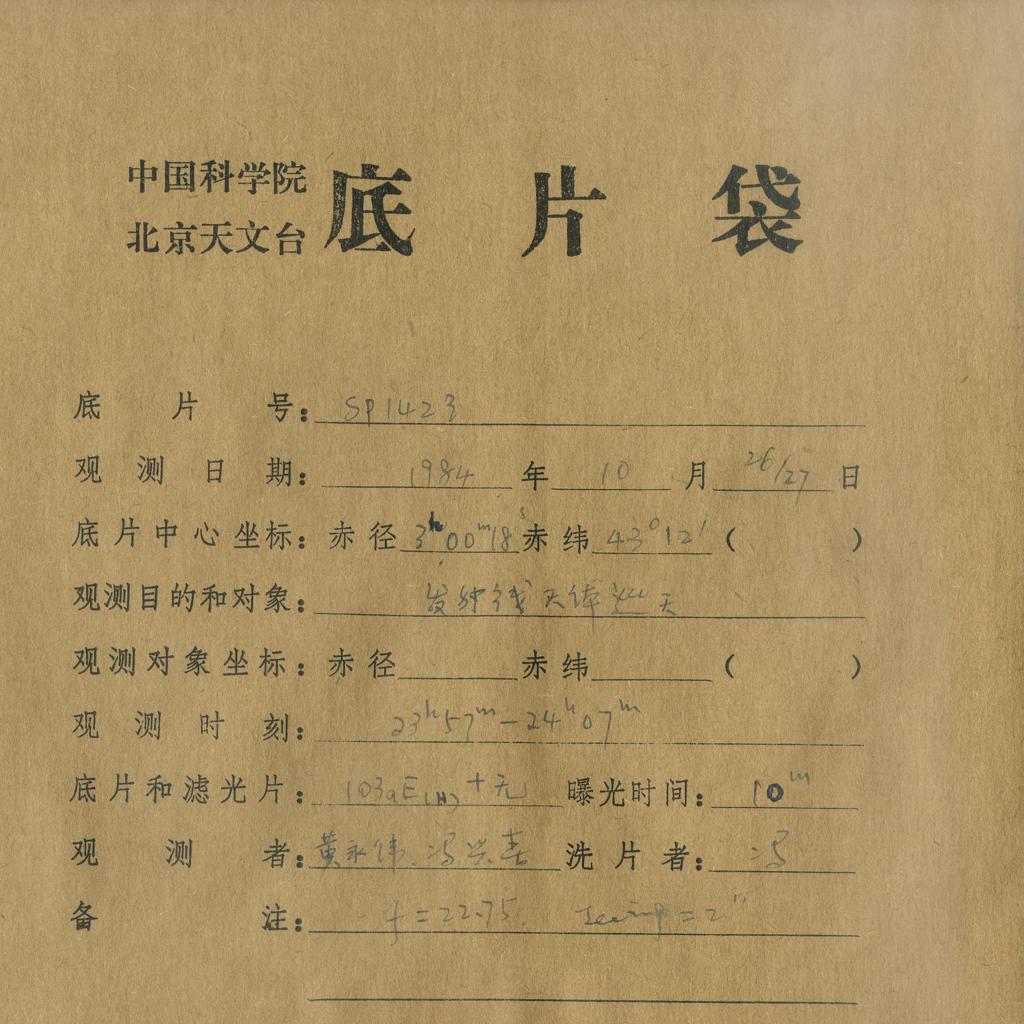 中国科学院
北京天文台
底片袋
底片号：SP1423
观测日期：1984年10月26/27日
底片中心坐标：赤径3ʰ00ᵐ18ˢ赤纬43°12′（ ）
观测目的和对象：发射线天体巡天
观测对象坐标：赤径 赤纬 （ ）
观测时刻：23ʰ57ᵐ－24ʰ07ᵐ
底片和滤光片：103aE(H)+无 曝光时间：10ᵐ
观测者：黄永伟、冯兴春 洗片者：冯
备注：f=22.75 Seeing=2″